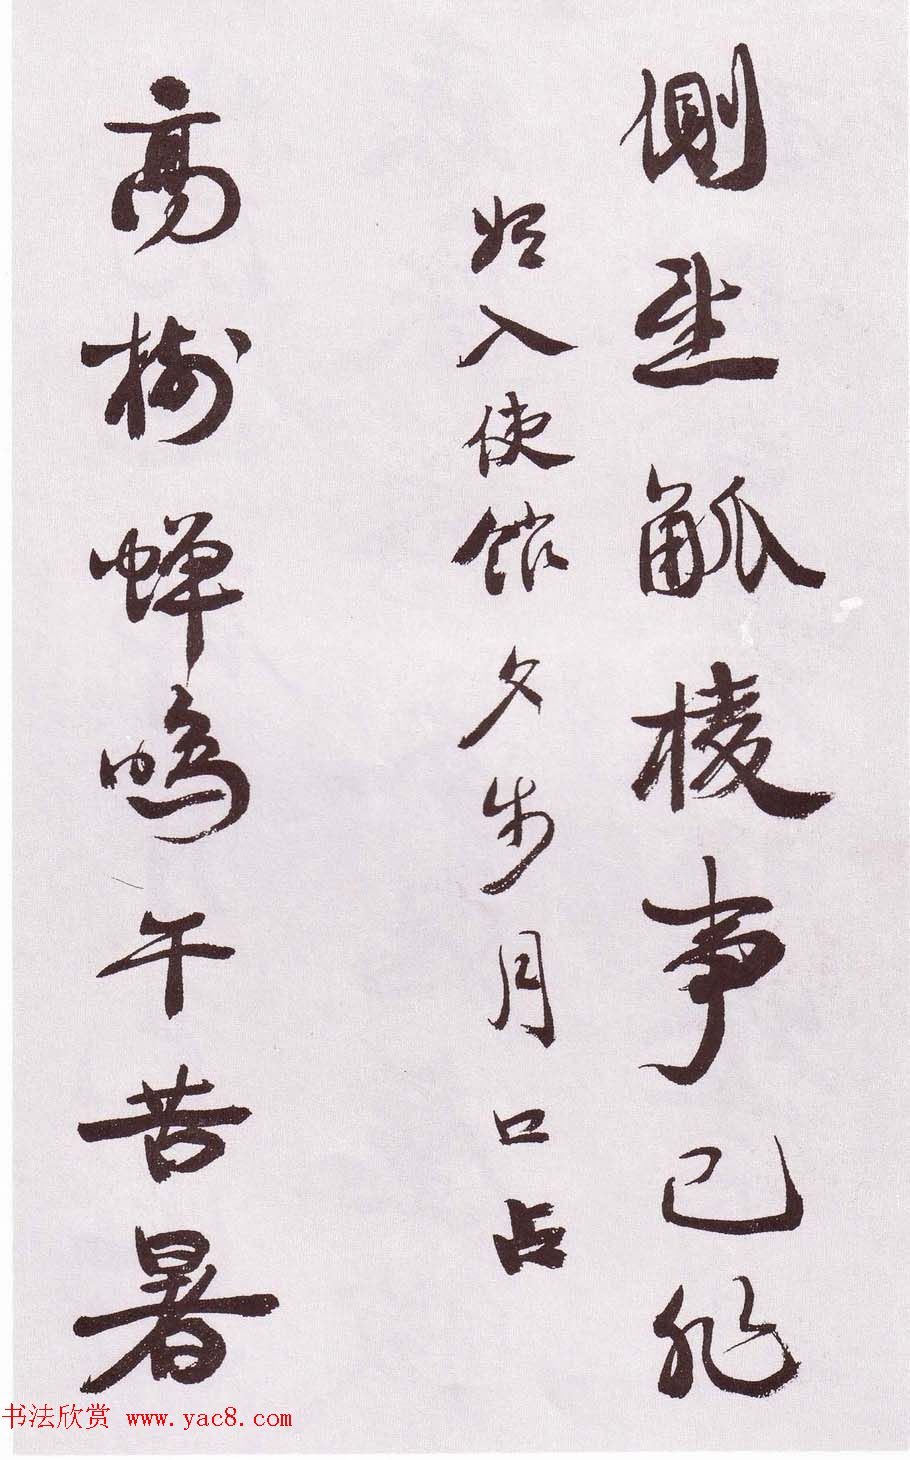 側望觚棱事已非
始入使館夕步月口占
高樹蝉鳴午苦暑
书法欣赏 www.yac8.com